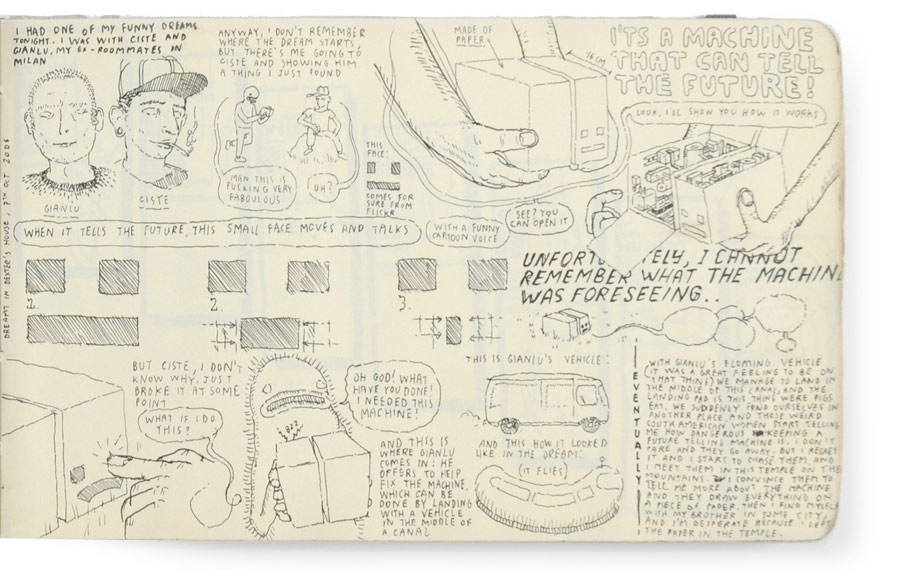 I HAD ONE OF MY FUNNY DREAMS
TONIGHT. I WAS WITH CISTE AND
GIANLU, MY EX-ROOMMATES IN
MILAN
GIANLU
CISTE
DREAMT IN DEXTER'S HOUSE, 7TH OCT 2006
ANYWAY, I DON'T REMEMBER
WHERE THE DREAM STARTS,
BUT THERE'S ME GOING TO
CISTE AND SHOWING HIM
A THING I JUST FOUND
MAN THIS IS
FUCKING VERY
FABOULOUS
UH?
THIS
FACE:
COMES FOR
SURE FROM
FLICKR
MADE OF
PAPER
16 CM
I'TS A MACHINE
THAT CAN TELL
THE FUTURE!
LOOK, I'LL SHOW YOU HOW IT WORKS
SEE? YOU
CAN OPEN IT
WHEN IT TELLS THE FUTURE, THIS SMALL FACE MOVES AND TALKS
WITH A FUNNY
CARTOON VOICE
1.
2.
3.
UNFORTUNATELY, I CANNOT
REMEMBER WHAT THE MACHINE
WAS FORESEEING..
BUT CISTE, I DON'T
KNOW WHY, JUST
BROKE IT AT SOME
POINT
WHAT IF I DO
THIS?
OH GOD! WHAT
HAVE YOU DONE!
I NEEDED THIS
MACHINE!
AND THIS IS
WHERE GIANLU
COMES IN: HE
OFFERS TO HELP
FIX THE MACHINE,
WHICH CAN BE
DONE BY LANDING
WITH A VEHICLE
IN THE MIDDLE OF
A CANAL
THIS IS GIANLU'S VEHICLE:
AND THIS HOW IT LOOKED
LIKE IN THE DREAM:
(IT FLIES)
EVENTUALLY
WITH GIANLU'S FLOATING VEHICLE
(IT WAS A GREAT FEELING TO BE ON
THAT THING) WE MANAGE TO LAND IN
THE MIDDLE OF THIS CANAL, AND THE
LANDING PAD IS THIS THING WERE PIGS
EAT. WE SUDDENLY FIND OURSELVES IN
ANOTHER PLACE, AND THESE WEIRD
SOUTH AMERICAN WOMEN START TELLING
ME HOW DANGEROUS KEEPING A
FUTURE TELLING MACHINE IS. I DON'T
CARE AND THEY GO AWAY. BUT I REGRET
IT AND I START TO CHASE THEM, AND
I MEET THEM IN THIS TEMPLE ON THE
MOUNTAINS. I CONVINCE THEM TO
TELL ME MORE ABOUT THE MACHINE
AND THEY DRAW EVERYTHING ON
A PIECE OF PAPER. THEN I FIND MYSELF
WITH MY BROTHER IN SOME CITY,
AND I'M DESPERATE BECAUSE I LEFT
THE PAPER IN THE TEMPLE.